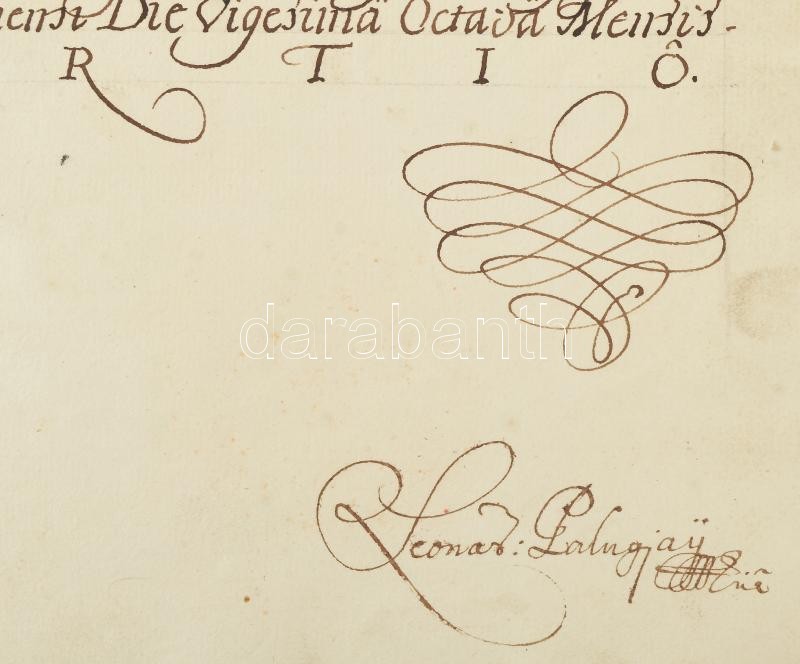 Die Vigesimâ Octavâ Mensis.
R T I Ô.
darabanth
Leonar: Palugjaÿ